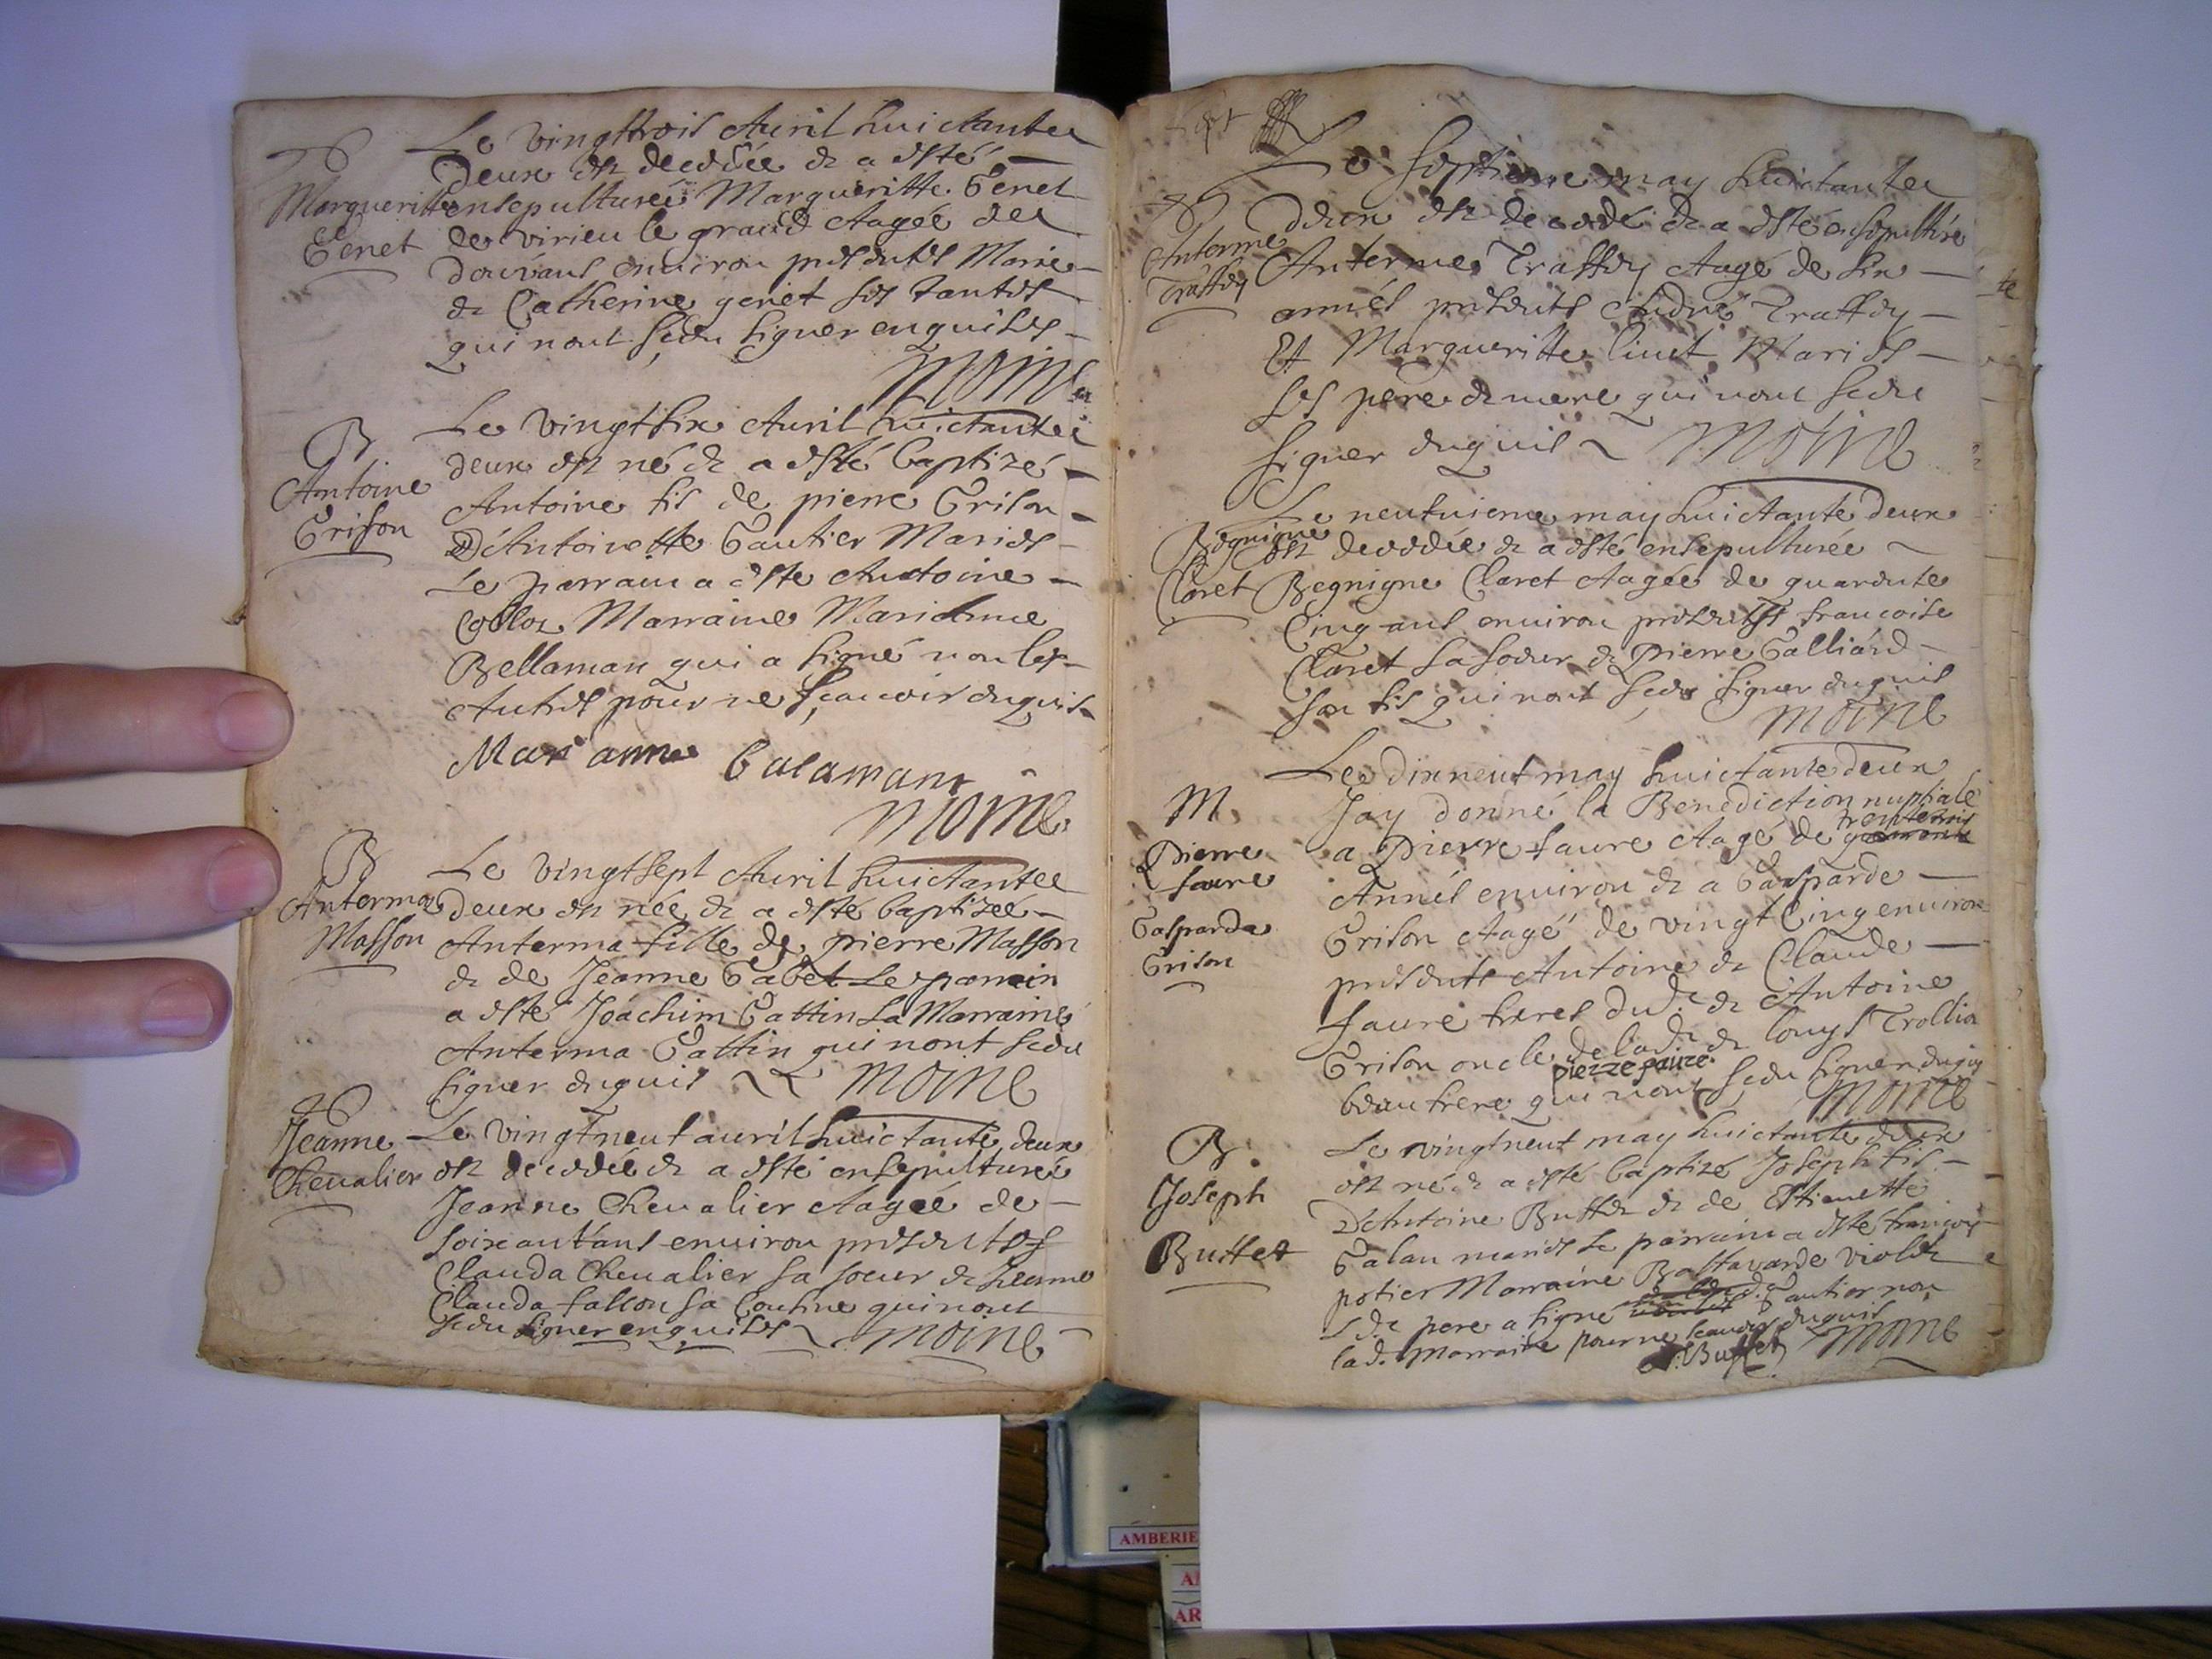 Le vingttrois Auril huictantee
deux est decedée & a esté
Margueritte ensepulturée Margueritte Genet
Genet de virieu le grand Aagée de
douz'ans enuiron presentes Marie
& Catherine genet ses tantes
qui nont sceu signer enquises
Moine
B
Le vingtsix Auril huictantee
deux est né & a esté baptizé
Antoine
Grison
Antoine fils de pierre Grison
& d'Antoinette Gautier Mariés
Le parrain a esté Antoine
Marraine Marianne
Bellaman qui a signé non les
Autres pour ne sçauoir enquis
Mari anne balamant
Moine
B
Le vingtsept Auril huictantee
Anterma
Masson
deux est née & a esté baptizée
Anterma fille de pierre Masson
& de Jeanne Gabet Le parrain
a esté Joachim Gattin La Marraine
Anterma Gattin qui nont sceu
signer enquis Moine
Jeanne
Cheualier
Le vingtneuf auril huictante deux
est decedée & a esté ensepulturée
Jeanne Cheualier Aagée de
soixant'ans enuiron presentes
Clauda Cheualier sa soeur & Jeanne
Clauda fallon sa Cousine qui nont
sceu signer enquises Moine
Sept
Le septieme may huictantee
deux est decedé & a esté ensepulturé
Anterme
Traffey
Anterme Traffey Aagé de six
années presents André Traffey
Et Margueritte liuet Mariés
ses pere & mere qui nont sceu
signer enquis Moine
Le neufuieme may huictante deux
Begnigne
Claret
est decedée & a esté ensepulturée
Begnigne Claret Aagée de quarente
Cinq ans enuiron presents francoise
Claret sa soeur & Pierre Galliard
son fils qui nont sceu signer enquis
Moine
M.
Pierre
faure
Gasparde
Grison
Le dixneuf may huictante deux
Jay donné la Benediction nuptiale
a Pierre faure Aagé de trentesix
Années enuiron & a Gasparde
Grison Aagé de vingt Cinq enuiron
presents Antoine & Claude
faure freres dud. & Antoine
Grison oncle de lad. & louys Trollia
beaufrere qui nont sceu signer enquis
pierre faure
Moine
B.
Joseph
Buffet
Le vingtneuf may huictante deux
est né & a esté baptizé Joseph fils
d'Antoine Buffet & de Estienette
Galan mariés Le parrain a esté françois
potier Marraine Baltazarde violet
led. pere a signé Gautier non
lad. Marraine pour ne scauoir enquis
A. Buffet Moine
AMBERIE
AR